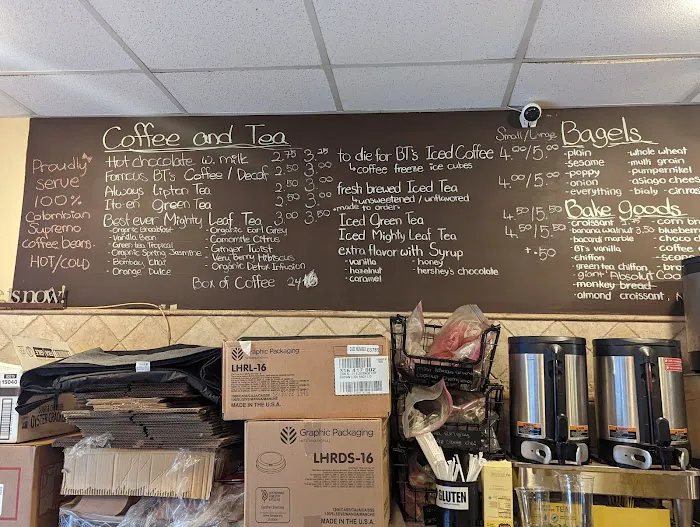 Coffee and Tea
Proudly
serve
100%
Colombian
Supremo
coffee beans.
HOT/COLD
Hot chocolate w. milk 2.75 3.25
Famous BT's Coffee / Decaf 2.50 3.00
Always Lipton Tea 2.50 3.00
Ito-en Green Tea 2.50 3.00
Best ever Mighty Leaf Tea 3.00 3.50
- Organic Breakfast
- Vanilla Bean
- Green tea Tropical
- Organic Spring Jasmine
- Bombay Chai
- Orange Dulce
- Organic Earl Grey
- Camomile Citrus
- Ginger Twist
- Very Berry Hibiscus
- Organic Detox Infusion
Box of Coffee 24
Small/Large
to die for BT's Iced Coffee 4.00/5.00
coffee freeze ice cubes
fresh brewed Iced Tea 4.00/5.00
unsweetened / unflavored
made to order
Iced Green Tea 4.50/5.50
Iced Mighty Leaf Tea 4.50/5.50
extra flavor with Syrup +.50
- vanilla
- hazelnut
- caramel
- honey
- hershey's chocolate
Bagels
- plain
- sesame
- poppy
- onion
- everything
- bialy
- whole wheat
- multi grain
- pumpernikel
- asiago chees
- cinna
Bake goods
- croissant
- banana walnut 3.50
- bacardi marble
- BT's vanilla
- chiffon
- green tea chiffon
- giant "Absolut Coo
- monkey bread
- almond croissant,
- corn
- blueberr
- choco
- coffee
- scon
- bro
snow!
15040
OYSTER
Graphic Packaging
INTERNATIONAL
LHRL-16
MADE IN THE U.S.A.
Graphic Packaging
INTERNATIONAL
LHRDS-16
MADE IN THE U.S.A.
GLUTEN